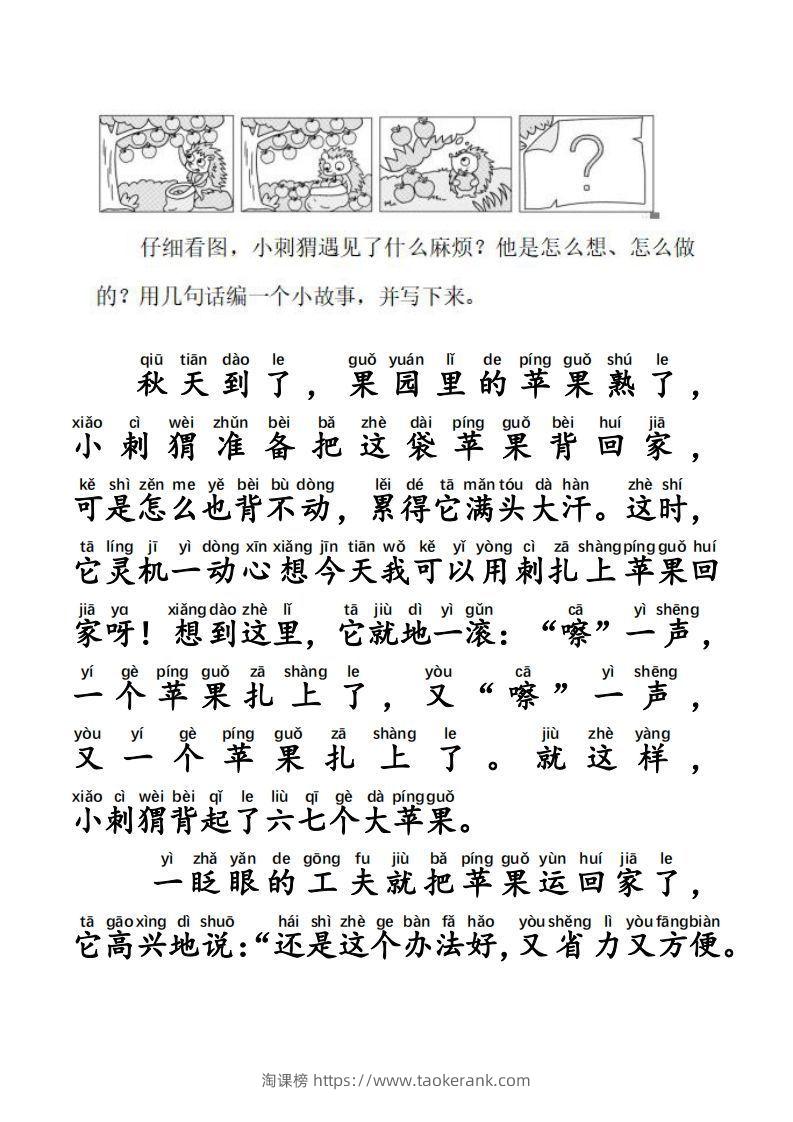 ?
仔细看图，小刺猬遇见了什么麻烦？他是怎么想、怎么做
的？用几句话编一个小故事，并写下来。
qiū tiān dào le guǒ yuán lǐ de píng guǒ shú le
秋天到了，果园里的苹果熟了，
xiǎo cì wèi zhǔn bèi bǎ zhè dài píng guǒ bèi huí jiā
小刺猬准备把这袋苹果背回家，
kě shì zěn me yě bèi bù dòng lěi dé tā mǎn tóu dà hàn zhè shí
可是怎么也背不动，累得它满头大汗。这时，
tā líng jī yì dòng xīn xiǎng jīn tiān wǒ kě yǐ yòng cì zā shàng píng guǒ huí
它灵机一动心想今天我可以用刺扎上苹果回
jiā ya xiǎng dào zhè lǐ tā jiù dì yì gǔn cā yì shēng
家呀！想到这里，它就地一滚：“嚓”一声，
yí gè píng guǒ zā shàng le yòu cā yì shēng
一个苹果扎上了，又“嚓”一声，
yòu yí gè píng guǒ zā shàng le jiù zhè yàng
又一个苹果扎上了。就这样，
xiǎo cì wèi bèi qǐ le liù qī gè dà píng guǒ
小刺猬背起了六七个大苹果。
yì zhǎ yǎn de gōng fu jiù bǎ píng guǒ yùn huí jiā le
一眨眼的工夫就把苹果运回家了，
tā gāo xìng dì shuō hái shì zhè ge bàn fǎ hǎo yòu shěng lì yòu fāng biàn
它高兴地说：“还是这个办法好，又省力又方便。
淘课榜 https://www.taokerank.com